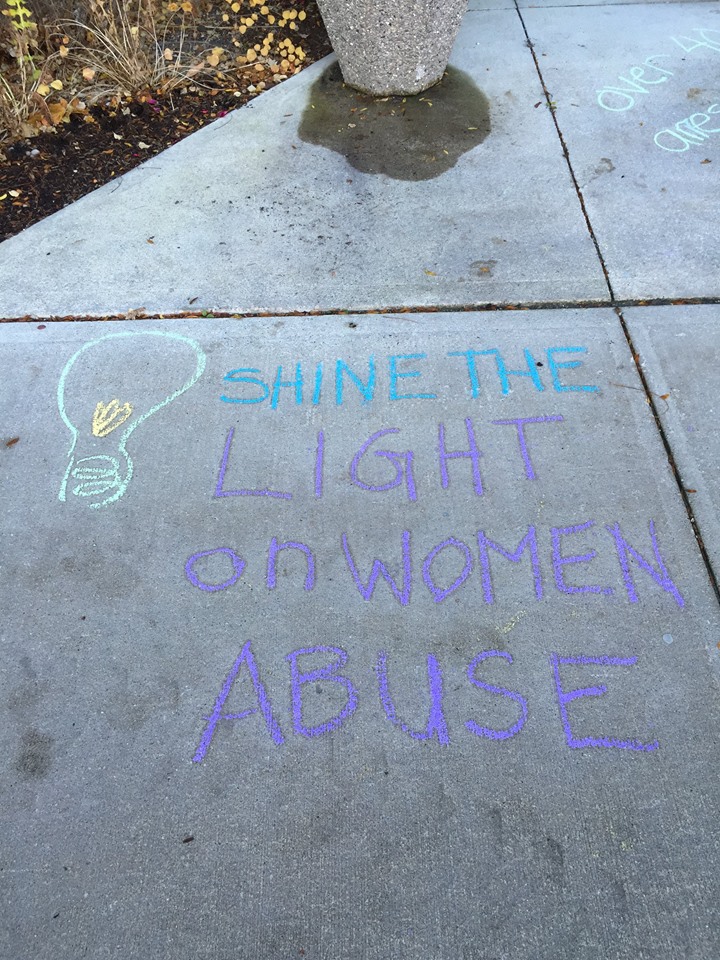 over 40
SHINE THE
LIGHT
on WOMEN
ABUSE